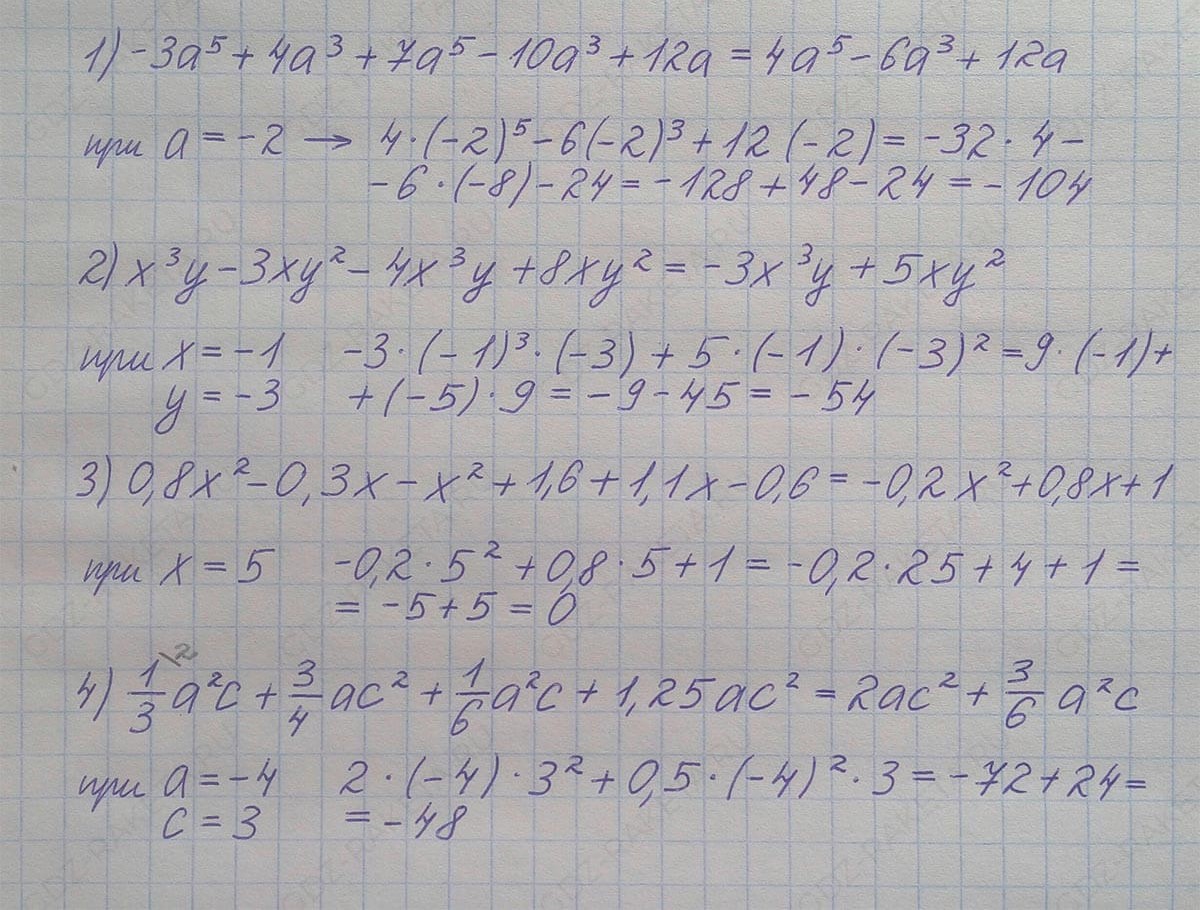 1) -3a⁵ + 4a³ + 7a⁵ - 10a³ + 12a = 4a⁵ - 6a³ + 12a
при a = -2 → 4·(-2)⁵ - 6(-2)³ + 12(-2) = -32·4 -
- 6·(-8) - 24 = -128 + 48 - 24 = -104
2) x³y - 3xy² - 4x³y + 8xy² = -3x³y + 5xy²
при x = -1 -3·(-1)³·(-3) + 5·(-1)·(-3)² = 9·(-1) +
y = -3 + (-5)·9 = -9 - 45 = -54
3) 0,8x² - 0,3x - x² + 1,6 + 1,1x - 0,6 = -0,2x² + 0,8x + 1
при x = 5 -0,2·5² + 0,8·5 + 1 = -0,2·25 + 4 + 1 =
= -5 + 5 = 0
4) 1/3\2 a²c + 3/4 ac² + 1/6 a²c + 1,25ac² = 2ac² + 3/6 a²c
при a = -4 2·(-4)·3² + 0,5·(-4)²·3 = -72 + 24 =
c = 3 = -48